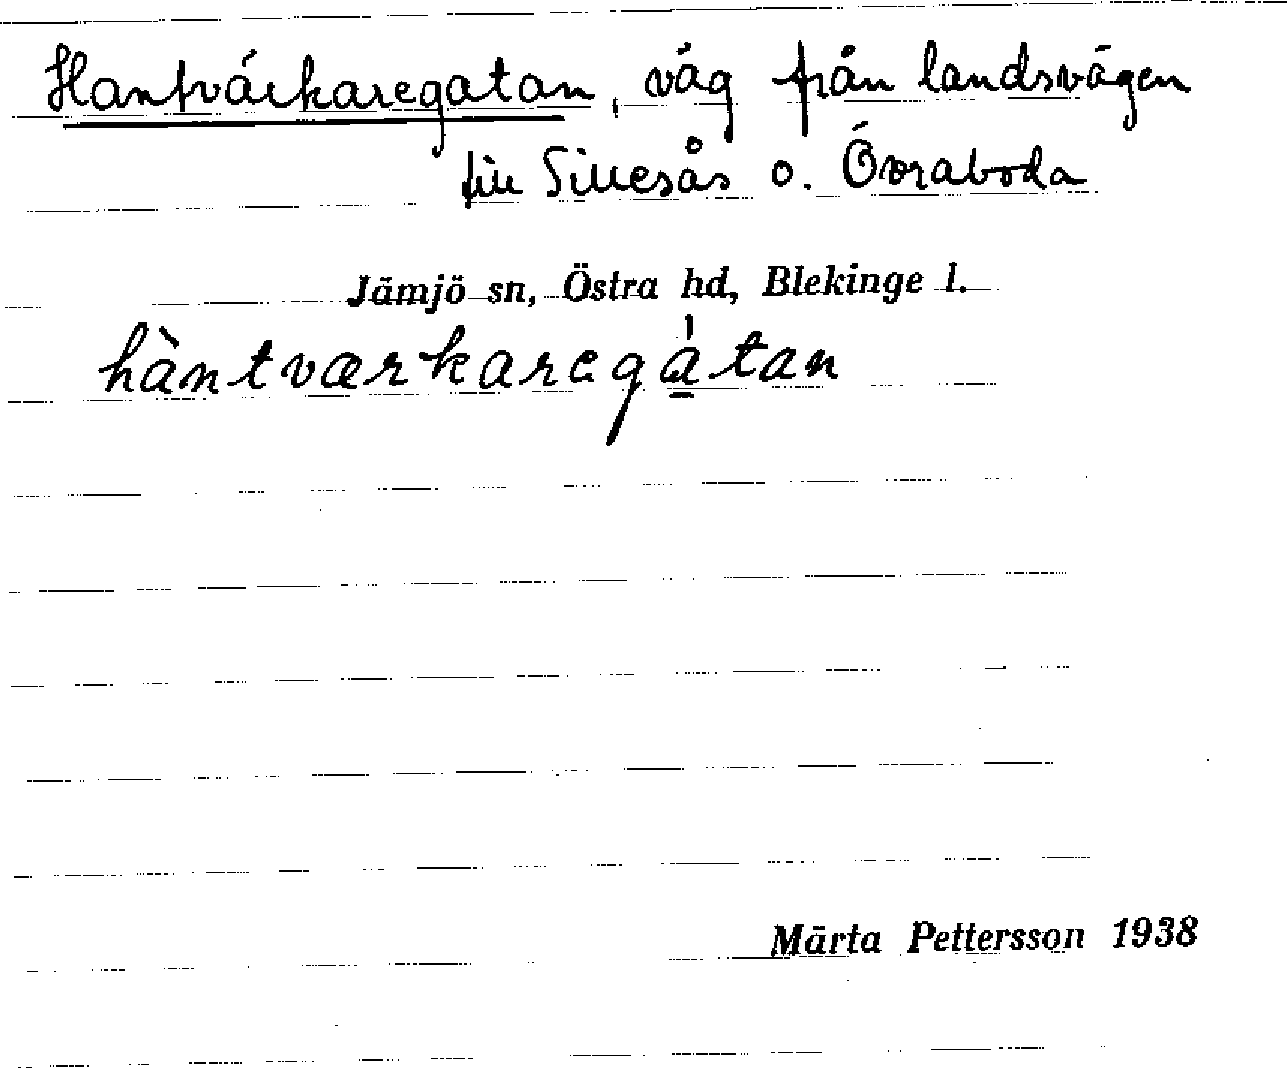 Hantvärkaregatan, väg från landsvägen
till Sillesås o. Övraboda
Jämjö sn, Östra hd, Blekinge l.
hàntværkaregátan
Märta Pettersson 1938